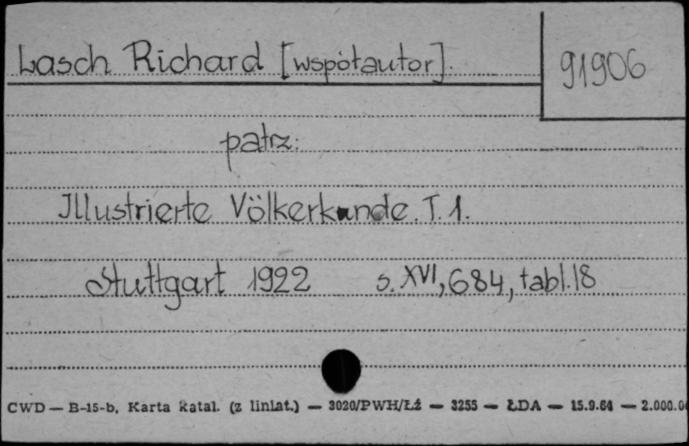 Lasch Richard [współautor].
91906
patrz:
Illustrierte Völkerkunde. T. 1.
Stuttgart 1922 s. XVI, 684, tabl. 18
CWD — B-15-b. Karta katal. (z liniat.) — 3020/PWH/Łż — 3255 — ŁDA — 15.9.64 — 2.000.0